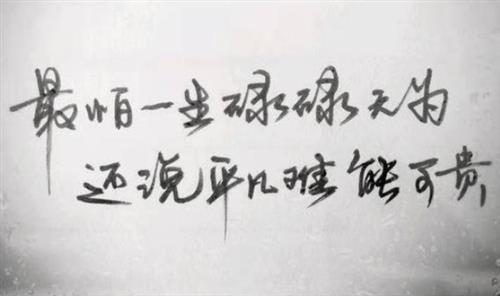 最怕一生碌碌无为
还说平凡难能可贵